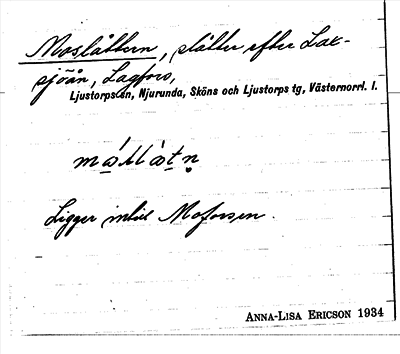 Moslåttern, slåtter efter Lax-
sjöån, Lagfors,
Ljustorps sn, Njurunda, Sköns och Ljustorps tg, Västernorrl. l.
Ligger intill Moforsen.
ANNA-LISA ERICSON 1934